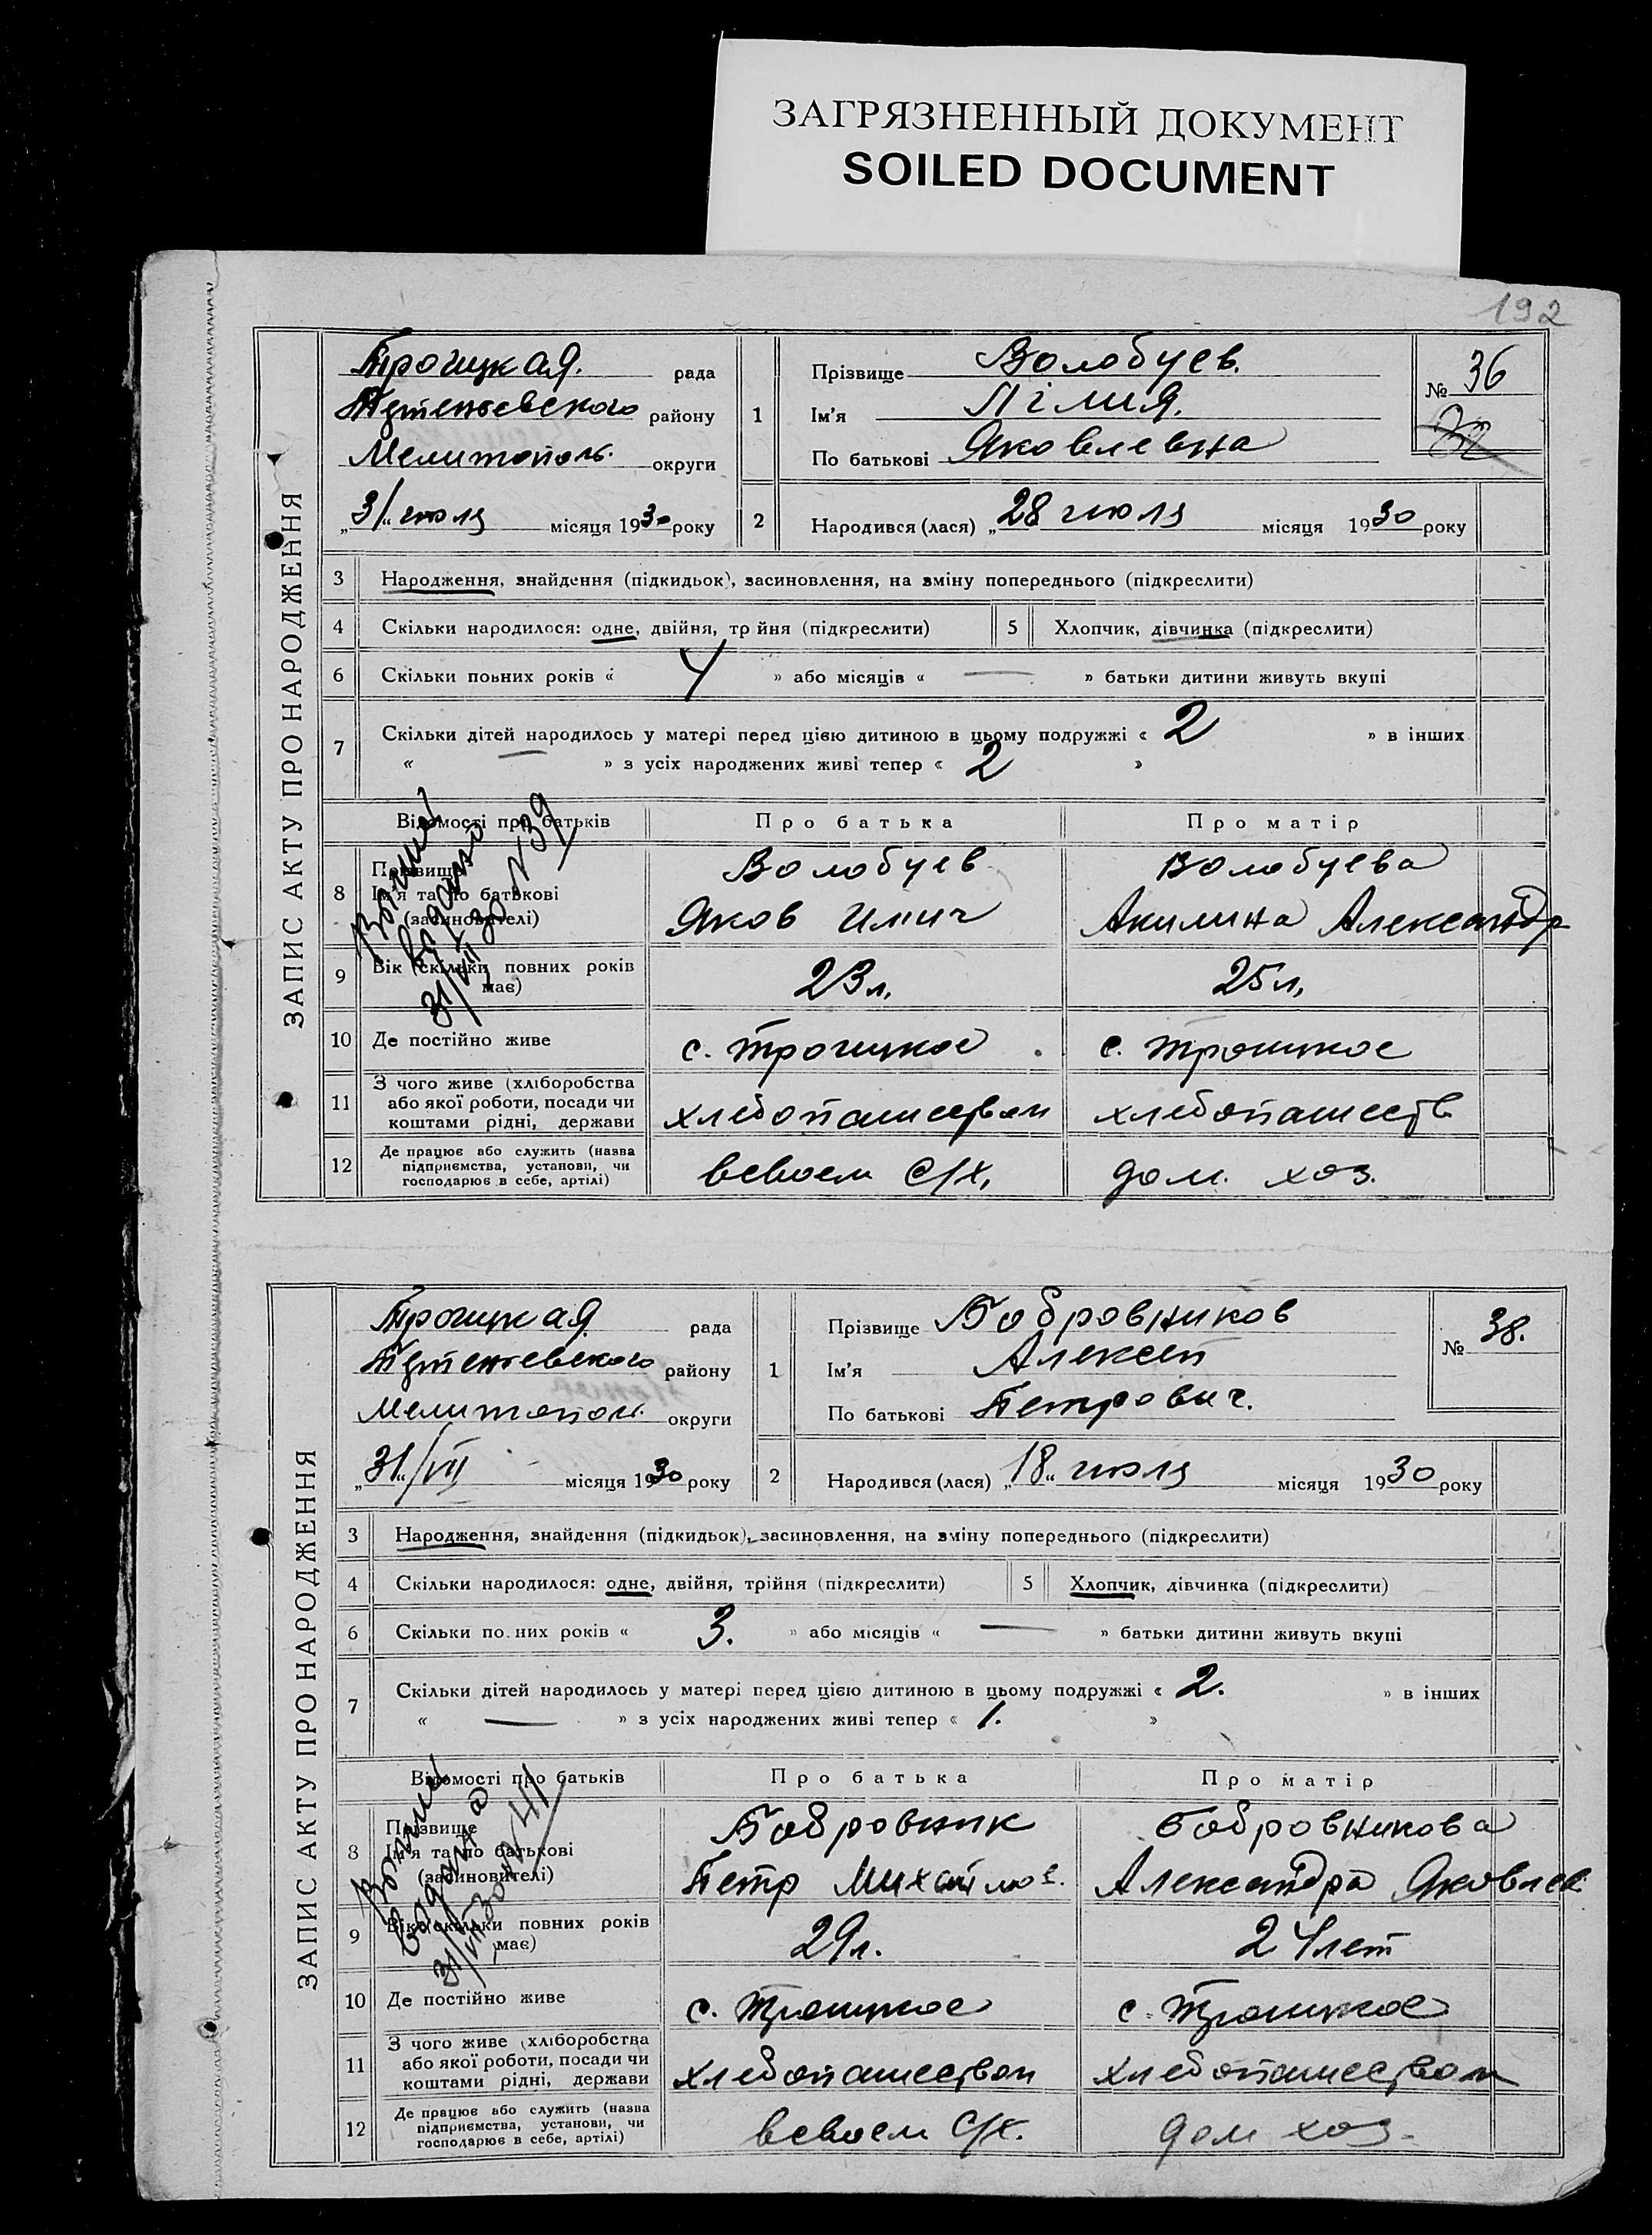 ЗАГРЯЗНЕННЫЙ ДОКУМЕНТ
SOILED DOCUMENT
192
ЗАПИС АКТУ ПРО НАРОДЖЕННЯ
Троицкая. рада
району
Мелитополь. округи
„31“ июля місяця 1930 року
1 Прізвище Волобуев.
Ім’я Лiлия.
По батькові Яковлевна
№ 36
2 Народився (лася) „28 июля місяця 1930 року
3 Народження, знайдення (підкидьок), засиновлення, на зміну попереднього (підкреслити)
4 Скільки народилося: одне, двійня, трійня (підкреслити) 5 Хлопчик, дівчинка (підкреслити)
6 Скільки повних років « 4 » або місяців « — » батьки дитини живуть вкупі
7 Скільки дітей народилось у матері перед цією дитиною в цьому подружжі « 2 » в інших
« — » з усіх народжених живі тепер « 2 »
Відомості про батьків Про батька Про матір
8 Прізвище Волобуев Волобуева
Ім’я та по батькові
(засиновителі) Яков Илич Акилина Александр
9 Вік (скільки повних років має) 23 л. 25 л.
10 Де постійно живе с. Троицкое с. Троицкое
11 З чого живе (хліборобства
або якої роботи, посади чи хлебопашеством хлебопашеств
коштами рідні, держави
12 Де працює або служить (назва
підприємства, установи, чи всвоем с/х. дом. хоз.
господарює в себе, артілі)
выдано
31/VII 30 N 39
ЗАПИС АКТУ ПРО НАРОДЖЕННЯ
Троицкая рада
району
Мелитопол. округи
„31“/VII місяця 1930 року
1 Прізвище Бобровников
Ім’я Алексей
По батькові Петрович.
№ 38.
2 Народився (лася) „18“ июля місяця 1930 року
3 Народження, знайдення (підкидьок), засиновлення, на зміну попереднього (підкреслити)
4 Скільки народилося: одне, двійня, трійня (підкреслити) 5 Хлопчик, дівчинка (підкреслити)
6 Скільки по.них років « 3. » або місяців « — » батьки дитини живуть вкупі
7 Скільки дітей народилось у матері перед цією дитиною в цьому подружжі « 2. » в інших
« — » з усіх народжених живі тепер « 1. »
Відомості про батьків Про батька Про матір
8 Прізвище Бобровник Бобровникова
Ім’я та по батькові
(засиновителі) Петр Михайлов. Александра Яковлев
9 Вік (скільки повних років має) 29 л. 24 лет
10 Де постійно живе с. Троицкое с. Троицкое
11 З чого живе (хліборобства
або якої роботи, посади чи хлебопашеством хлебопашеством
коштами рідні, держави
12 Де працює або служить (назва
підприємства, установи, чи всвоем с/х. дом хоз.
господарює в себе, артілі)
выдана